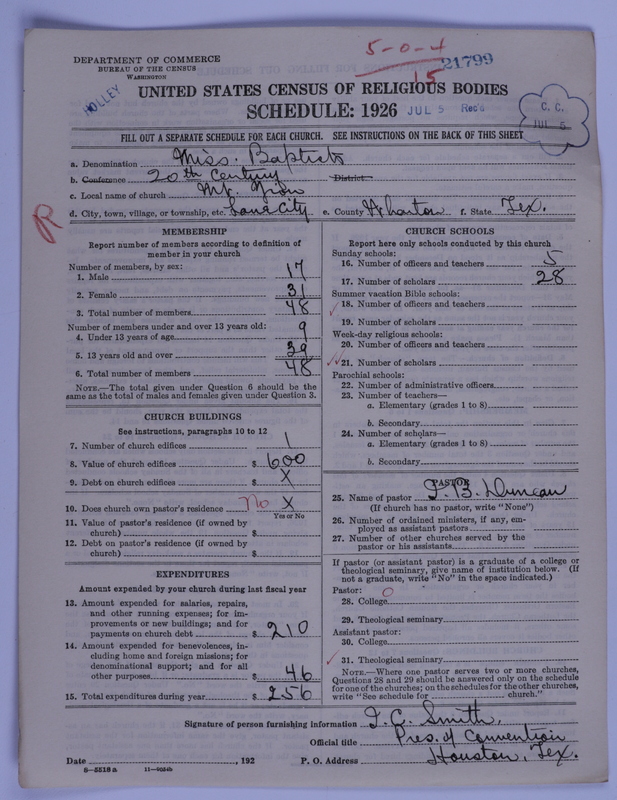 5-0-4
21799
15
DEPARTMENT OF COMMERCE
BUREAU OF THE CENSUS
WASHINGTON
HOLLEY
UNITED STATES CENSUS OF RELIGIOUS BODIES
SCHEDULE: 1926 JUL 5 Rec'd
C. C.
JUL 5
FILL OUT A SEPARATE SCHEDULE FOR EACH CHURCH. SEE INSTRUCTIONS ON THE BACK OF THIS SHEET
a. Denomination Miss. Baptists
b. Conference 20th Century District
c. Local name of church Mt. Zion
d. City, town, village, or township, etc. City e. County Wharton f. State Tex.
R
MEMBERSHIP
Report number of members according to definition of
member in your church
Number of members, by sex:
1. Male 17
2. Female 31
3. Total number of members 48
Number of members under and over 13 years old:
4. Under 13 years of age 9
5. 13 years old and over 39
6. Total number of members 48
NOTE.—The total given under Question 6 should be
same as the total of males and females given under Question 3.
CHURCH BUILDINGS
See instructions, paragraphs 10 to 12
7. Number of church edifices 1
8. Value of church edifices $ 600
9. Debt on church edifices $ X
10. Does church own pastor's residence? No X
Yes or No
11. Value of pastor's residence (if owned by
church) $
12. Debt on pastor's residence (if owned by
church) $
EXPENDITURES
Amount expended by your church during last fiscal year
13. Amount expended for salaries, repairs,
and other running expenses; for im-
provements or new buildings; and for
payments on church debt $ 210
14. Amount expended for benevolences, in-
cluding home and foreign missions; for
denominational support; and for all
other purposes $ 46
15. Total expenditures during year $ 256
CHURCH SCHOOLS
Report here only schools conducted by this church
Sunday schools:
16. Number of officers and teachers 5
17. Number of scholars 28
Summer vacation Bible schools:
18. Number of officers and teachers
19. Number of scholars
Week-day religious schools:
20. Number of officers and teachers
21. Number of scholars
Parochial schools:
22. Number of administrative officers
23. Number of teachers—
a. Elementary (grades 1 to 8)
b. Secondary
24. Number of scholars—
a. Elementary (grades 1 to 8)
b. Secondary
PASTOR
25. Name of pastor J. B. Duncan
(If church has no pastor, write "None")
26. Number of ordained ministers, if any, em-
ployed as assistant pastors
27. Number of other churches served by the
pastor or his assistants
If pastor (or assistant pastor) is a graduate of a college or
theological seminary, give name of institution below. (If
not a graduate, write "No" in the space indicated.)
Pastor: 0
28. College
29. Theological seminary
Assistant pastor:
30. College
31. Theological seminary
NOTE.—Where one pastor serves two or more churches,
Questions 28 and 29 should be answered only on the schedule
for one of the churches; on the schedules for the other churches,
write "See schedule for church."
Signature of person furnishing information J. C. Smith,
Official title Pres. of Convention
Date , 192 P. O. Address Houston, Tex.
8-5518 a 11-9054b